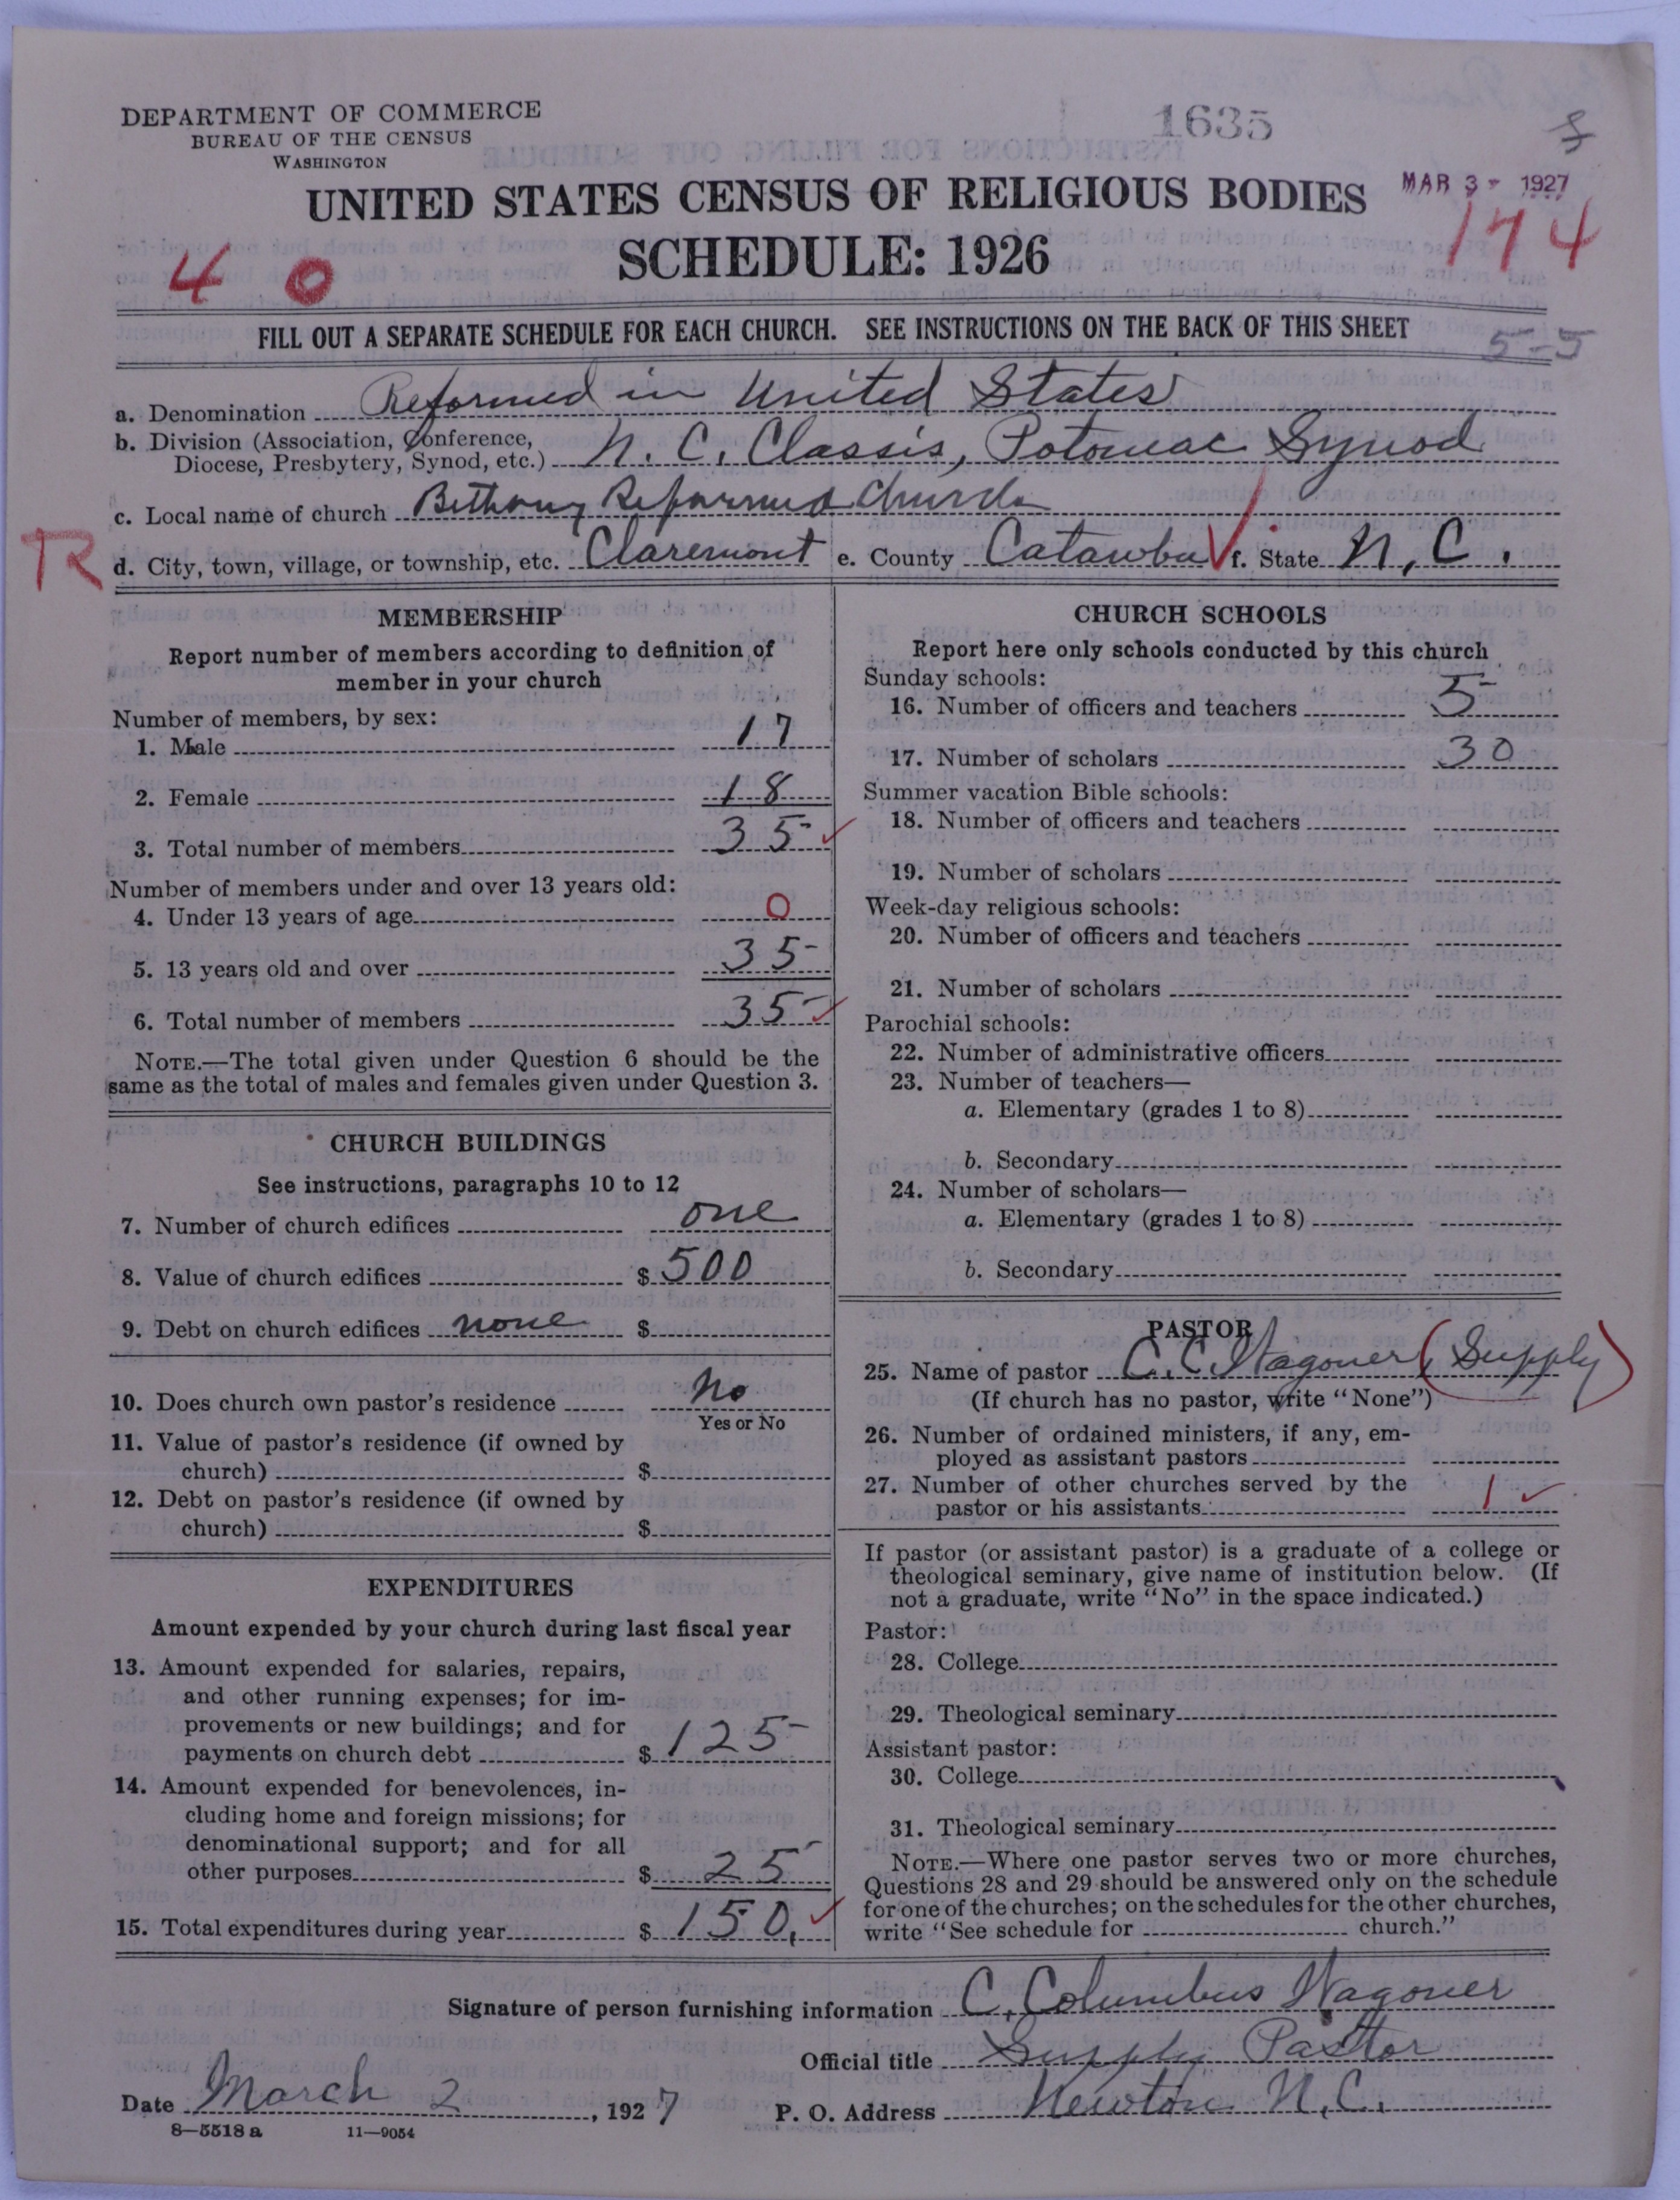 DEPARTMENT OF COMMERCE
BUREAU OF THE CENSUS
WASHINGTON
1635
UNITED STATES CENSUS OF RELIGIOUS BODIES
MAR 3 - 1927
SCHEDULE: 1926
174
4 0
FILL OUT A SEPARATE SCHEDULE FOR EACH CHURCH. SEE INSTRUCTIONS ON THE BACK OF THIS SHEET
5-5
a. Denomination Reformed in United States
b. Division (Association, Conference, Diocese, Presbytery, Synod, etc.) N. C. Classis, Potomac Synod
c. Local name of church Bethany Reformed Church
R
d. City, town, village, or township, etc. Claremont e. County Catawba f. State N, C.
MEMBERSHIP
Report number of members according to definition of
member in your church
Number of members, by sex:
1. Male 17
2. Female 18
3. Total number of members 35
Number of members under and over 13 years old:
4. Under 13 years of age 0
5. 13 years old and over 35
6. Total number of members 35
NOTE.—The total given under Question 6 should be the
same as the total of males and females given under Question 3.
CHURCH BUILDINGS
See instructions, paragraphs 10 to 12
7. Number of church edifices one
8. Value of church edifices $ 500
9. Debt on church edifices none $
10. Does church own pastor's residence No
Yes or No
11. Value of pastor's residence (if owned by
church) $
12. Debt on pastor's residence (if owned by
church) $
EXPENDITURES
Amount expended by your church during last fiscal year
13. Amount expended for salaries, repairs,
and other running expenses; for im-
provements or new buildings; and for
payments on church debt $ 125
14. Amount expended for benevolences, in-
cluding home and foreign missions; for
denominational support; and for all
other purposes $ 25
15. Total expenditures during year $ 150.
CHURCH SCHOOLS
Report here only schools conducted by this church
Sunday schools:
16. Number of officers and teachers 5
17. Number of scholars 30
Summer vacation Bible schools:
18. Number of officers and teachers
19. Number of scholars
Week-day religious schools:
20. Number of officers and teachers
21. Number of scholars
Parochial schools:
22. Number of administrative officers
23. Number of teachers—
a. Elementary (grades 1 to 8)
b. Secondary
24. Number of scholars—
a. Elementary (grades 1 to 8)
b. Secondary
PASTOR
25. Name of pastor C. C. Wagoner (Supply)
(If church has no pastor, write "None")
26. Number of ordained ministers, if any, em-
ployed as assistant pastors
27. Number of other churches served by the
pastor or his assistants 1
If pastor (or assistant pastor) is a graduate of a college or
theological seminary, give name of institution below. (If
not a graduate, write "No" in the space indicated.)
Pastor:
28. College
29. Theological seminary
Assistant pastor:
30. College
31. Theological seminary
NOTE.—Where one pastor serves two or more churches,
Questions 28 and 29 should be answered only on the schedule
for one of the churches; on the schedules for the other churches,
write "See schedule for church."
Signature of person furnishing information C. Columbus Wagoner
Official title Supply Pastor
Date March 2, 1927 P. O. Address Newton N. C.
8—5518 a 11—9054